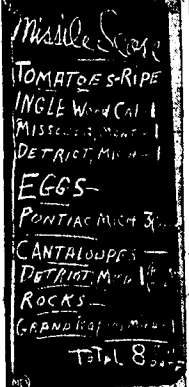 Missile Score
TOMATOES-RIPE
INGLEWood Cal-1
MISSOULA, MONT-1
DETRIOT, MICH-1
EGGS-
PONTIAC MICH 3
CANTALOUPES-
DETRIOT, MICH 1
ROCKS-
GRAND RAPIDS, MICH-1
TOTAL 8